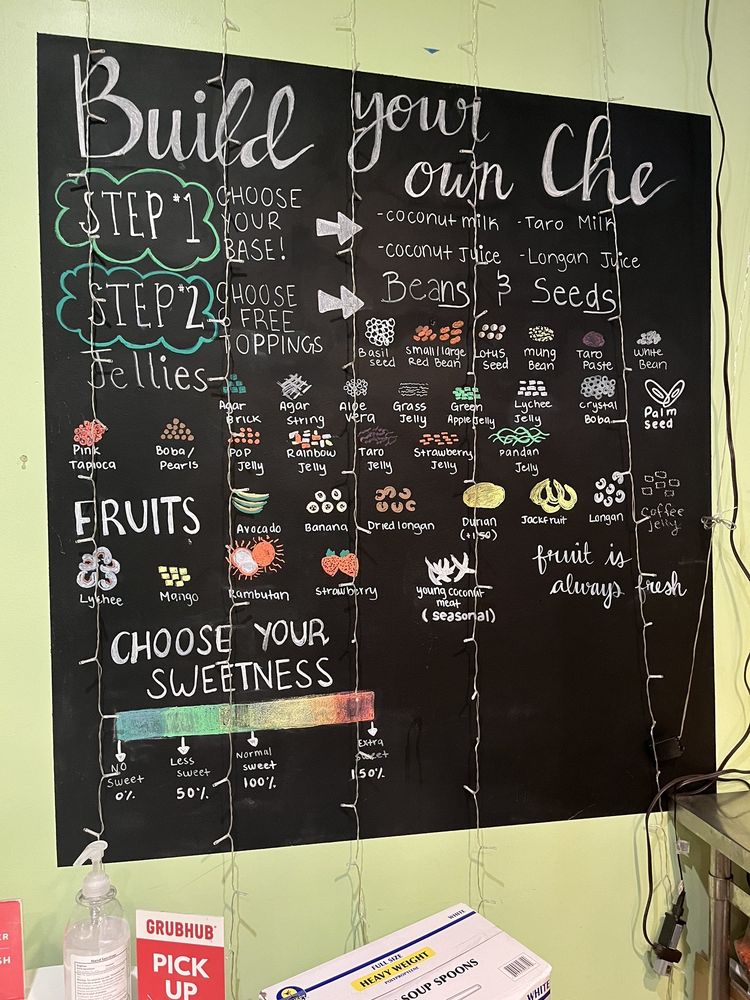 Build your
own Che
STEP #1
CHOOSE
YOUR
BASE!
-coconut milk -Taro Milk
-coconut Juice -Longan Juice
STEP #2
CHOOSE
FREE
TOPPINGS
Beans & Seeds
Basil seed
small/large Red Bean
Lotus Seed
mung Bean
Taro Paste
White Bean
Jellies-
Agar Brick
Agar String
Aloe vera
Grass Jelly
Green Apple Jelly
Lychee Jelly
crystal Boba
Palm seed
Pink Tapioca
Boba/ Pearls
POP Jelly
Rainbow Jelly
Taro Jelly
Strawberry Jelly
Pandan Jelly
FRUITS
Avocado
Banana
Dried longan
Durian (+1.50)
Jackfruit
Longan
Coffee Jelly
Lychee
Mango
Rambutan
Strawberry
young coconut meat (seasonal)
fruit is
always fresh
CHOOSE YOUR
SWEETNESS
NO Sweet 0%
Less Sweet 50%
Normal sweet 100%
Extra sweet 150%
GRUBHUB
PICK
UP
WHITE
FULL SIZE
HEAVY WEIGHT
POLYPROPYLENE
SOUP SPOONS
WHITE